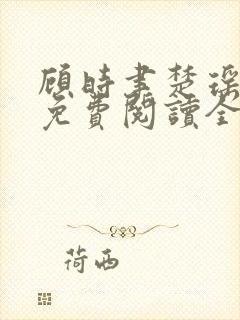 顧時書楚瑤
免費閱讀全
荷西